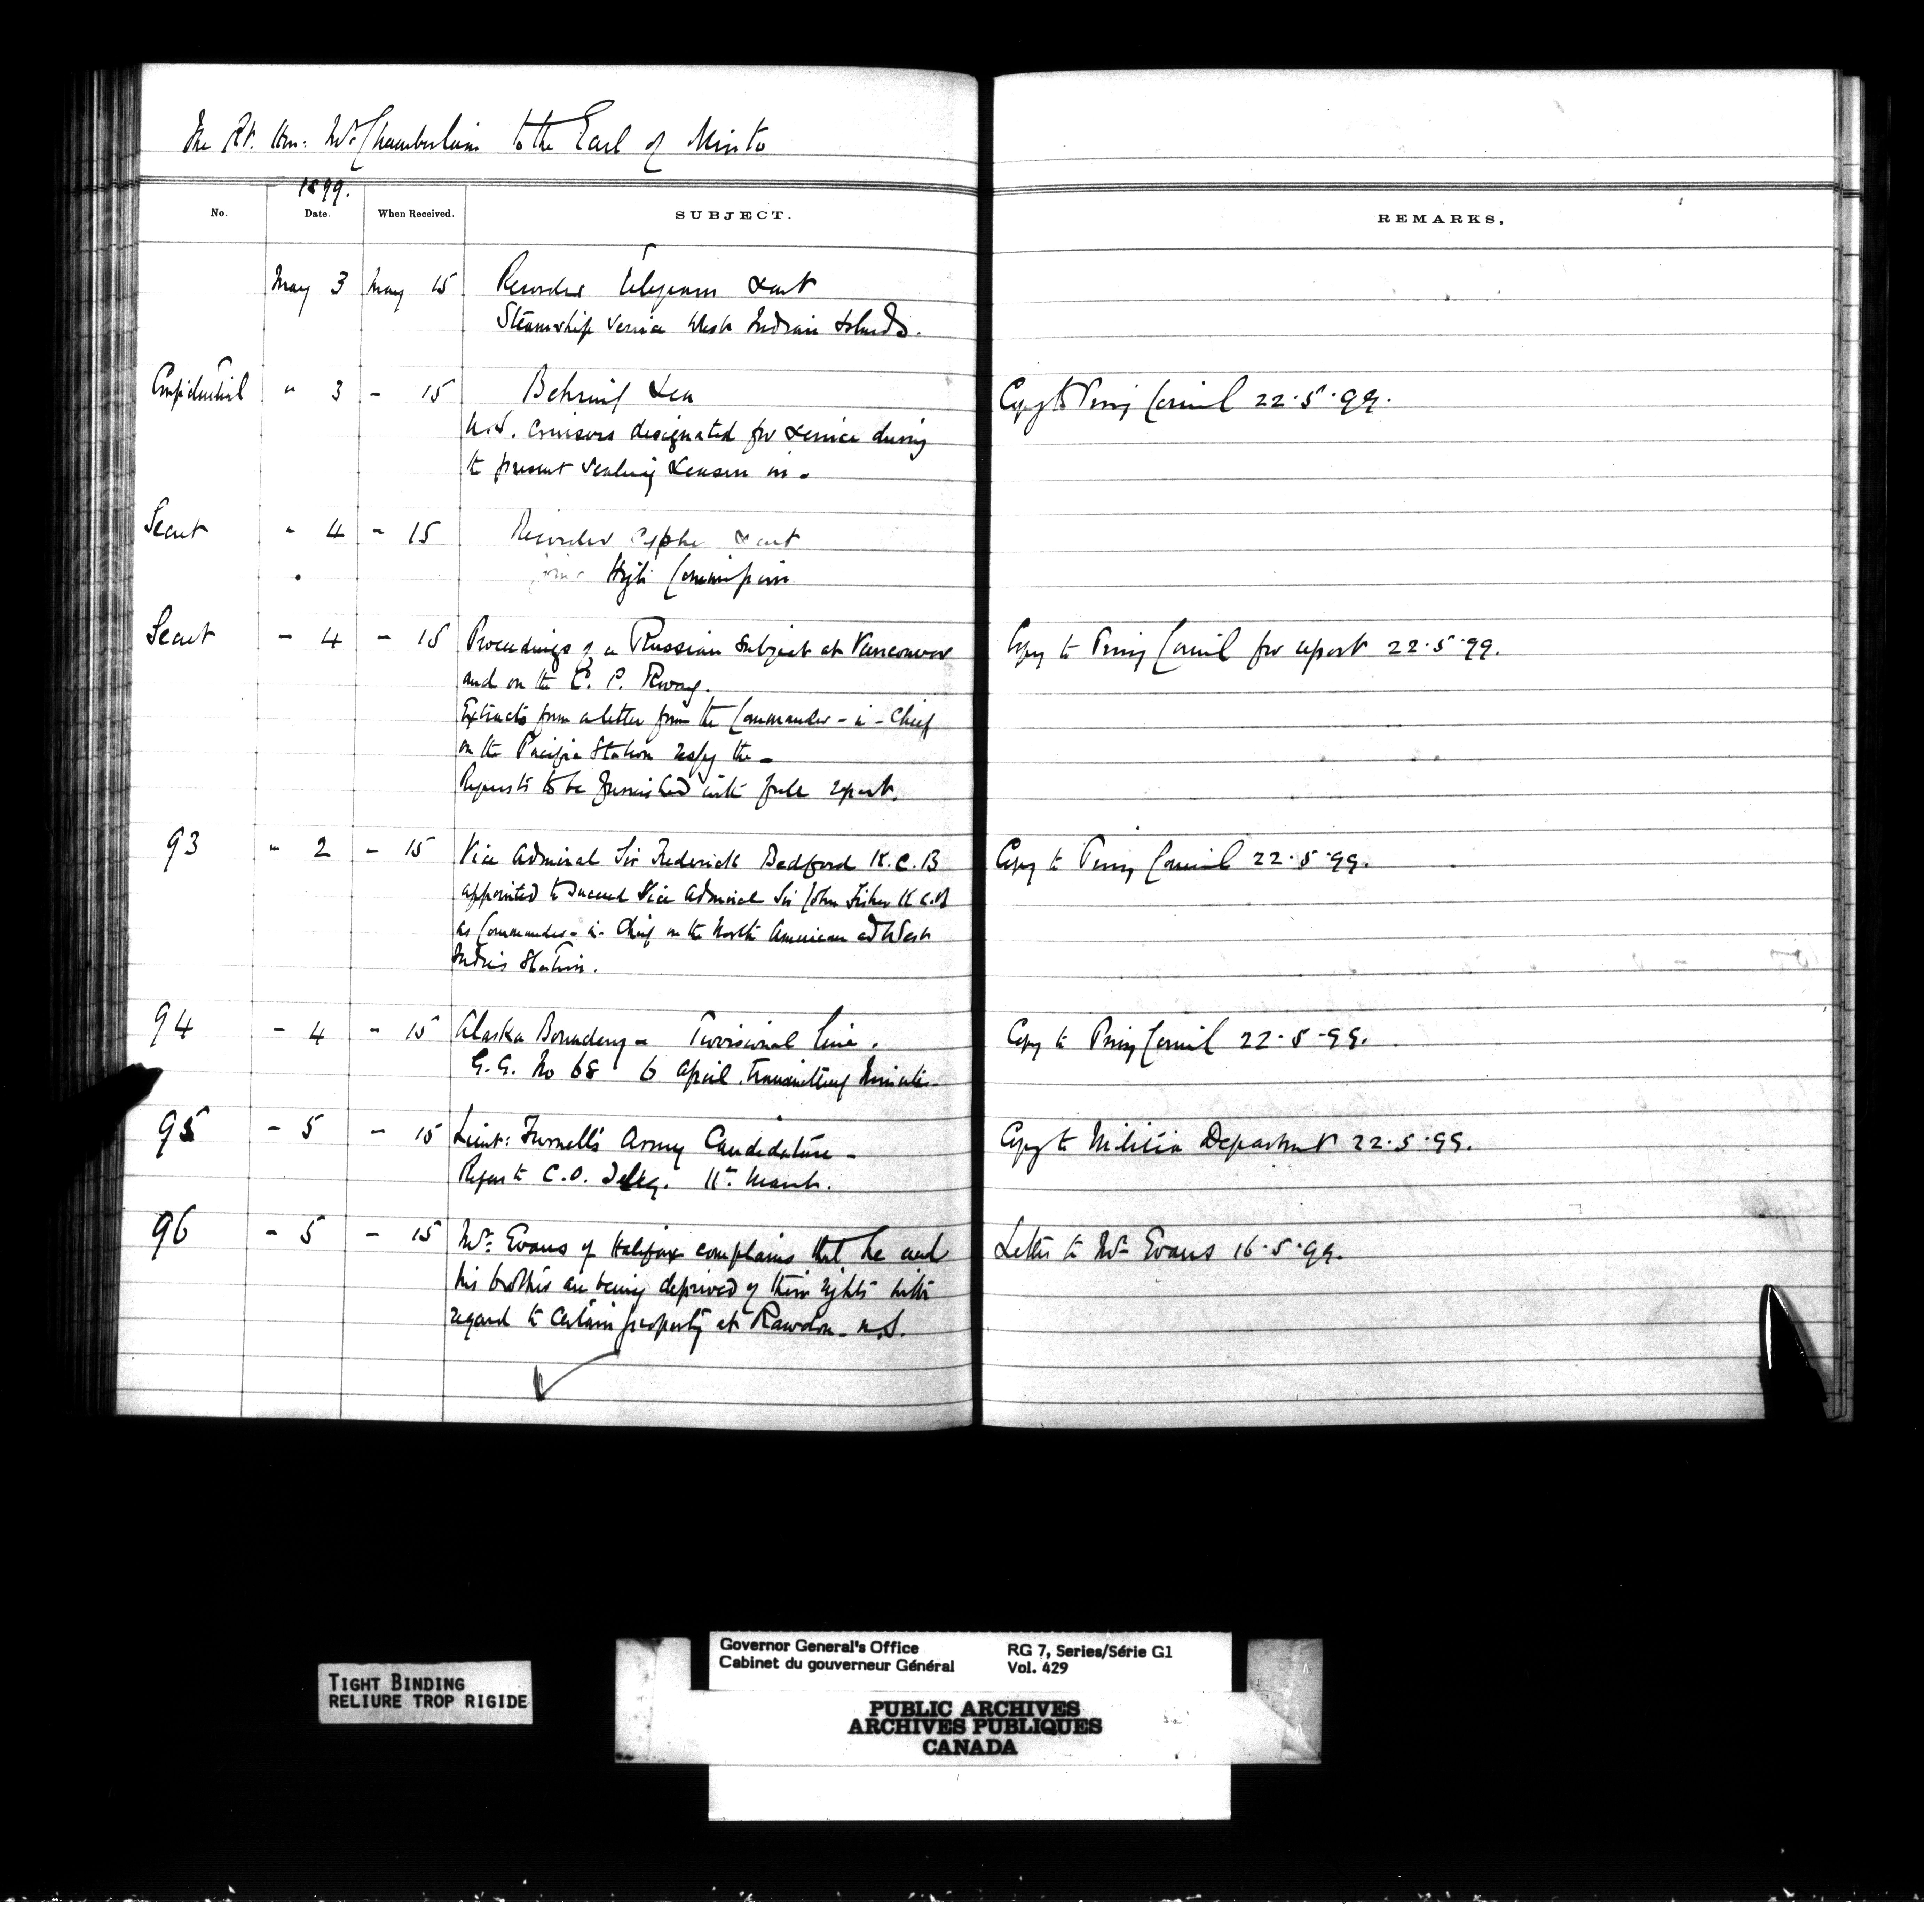 The Rt. Hon: Mr. Chamberlain to the Earl of Minto
1899.
No. Date. When Received. SUBJECT. REMARKS.
May 3 May 15 Recorder Telegram sent
Steamship service West Indian Islands.
Confidential " 3 - 15 Behring Sea Copy to Privy Council 22.5.99.
U.S. Cruisers designated for service during
the present sealing season in -
Secret " 4 - 15 Recorder cypher sent
Joint High Commission
Secret - 4 - 15 Proceedings of a Russian subject at Vancouver Copy to Privy Council for report 22.5.99.
and on the C. P. Rway.
Extracts from a letter from the Commander-in-Chief
on the Pacific Station respg the -
Requests to be furnished with full report.
93 " 2 - 15 Vice Admiral Sir Frederick Bedford K.C.B Copy to Privy Council 22.5.99.
appointed to succeed Vice Admiral Sir John Fisher K.C.B
as Commander-in-Chief on the North American and West
Indies Station.
94 - 4 - 15 Alaska Boundary - Provisional line. Copy to Privy Council 22.5.99.
G.G. No 68 6 April transmitting Minute -
95 - 5 - 15 Lieut: Furnell's Army Candidature - Copy to Militia Department 22.5.99.
Refers to C.O. 11th March.
96 - 5 - 15 Mr. Evans of Halifax complains that he and Letter to Mr Evans 16.5.99.
his brothers are being deprived of their rights with
regard to certain property at Rawdon - N.S.
TIGHT BINDING
RELIURE TROP RIGIDE
Governor General's Office RG 7, Series/Série G1
Cabinet du gouverneur Général Vol. 429
PUBLIC ARCHIVES
ARCHIVES PUBLIQUES
CANADA